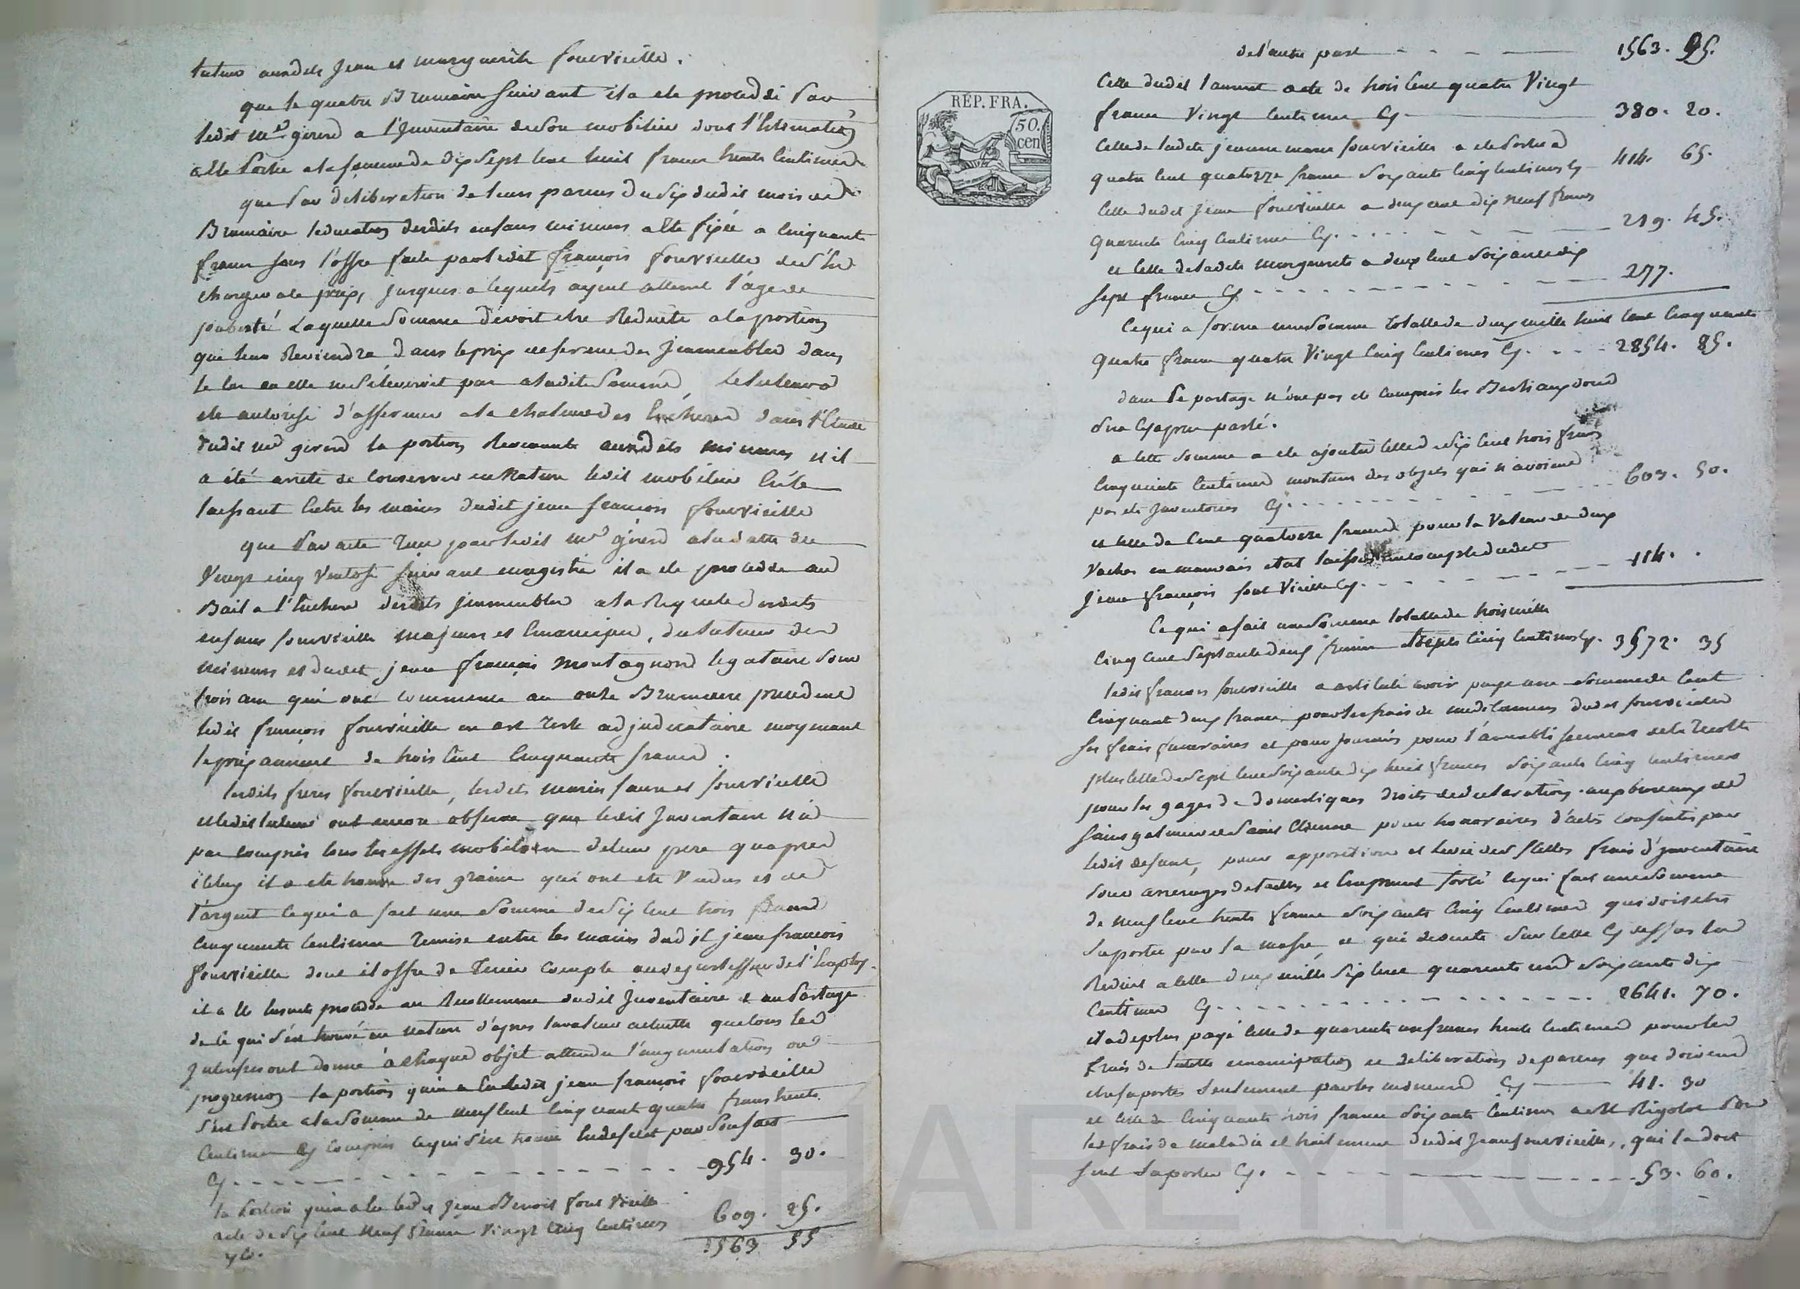 tuteur auxdits Jean et marguerite fourvieille.
que le quatre Brumaire Suivant il a été procédé par
ledit me girard a l'Inventaire du Son mobilier dont l'Estimation
a été Portée a la Somme de dix Sept Cent huit francs trente Centimes
que Par deliberation de leurs parens du Six dudit mois de
Brumaire l'education desdits enfans mineurs a été fixée a Cinquante
francs Sous l'offre faite par ledit françois fourvieille de S'en
charger a ce prix, jusques a lequels ayent atteint l'age de
puberté Laquelle Somme devoit etre Reduite a la portion
que leur Reviendra dans le prix de ferme des Jmmeubles dans
le cas ou elle ne S'éleveroit pas a ladite Somme, le tuteur a
été autorisé d'affermer a la chaleur des Encheres dans l'Etude
dudit me girard la portion Revenante auxdits mineurs et il
a été arreté de Conserver en Nature ledit mobilier En le
laissant Entre les mains dudit jean françois fourvieille
que Par acte Reçu par ledit me girard a la date du
Vingt cinq Ventose Suivant enregistré il a été procédé au
Bail a l'Enchere desdits jmmeubles a la Requete desdits
enfans fourvieille majeurs et Emancipés, du tuteur des
mineurs et dudit jean françois montagnond legataire pour
trois ans qui ont commencé au onze Brumaire precedent
ledit françois fourvieille en est Resté adjudicataire moyenant
le prix annuel de trois Cent Cinquante francs.
lesdits freres fourvieille, lesdits mariés faure et fourvieille
et ledit tuteur ont encore observé que ledit Inventaire n'a
pas compris tous les effets mobiliers de leur pere qu'après
icelluy il a été trouvé des grains qui ont été Vendus et de
l'argent ce qui a fait une Somme de Six Cent trois francs
Cinquante Centimes Remise entre les mains dudit jean françois
fourvieille dont il offre de Tenir compte ou de justiffier de l'Employ.
il a été Ensuite procédé au Recollement dudit Inventaire et au Partage
de ce qui S'est trouvé en nature d'apres la valeur actuelle que tous les
Interessés ont donné a chaque objet attendu l'augmentation ou
progression la portion qu'en a Eu ledit jean françois fourvieille
S'est Portée a la Somme de neuf Cent Cinquante quatre francs trente
Centimes Cy compris ce qui S'est trouvé En deficit par Son fait
Cy. - - - - - - - - - - 954. 30.
la Portion qu'en a eu ledit Jean Benoit fourvieille
acte de Six Cent Neuf francs Vingt Cinq Centimes
Cy. 609. 25.
1563 55
de l'autre part - - - - 1563. 55.
Celle dudit Laurent acte de trois Cent quatre Vingt
francs Vingt Centimes Cy. 380. 20.
Celle de Ladite jeanne marie fourvieille a été Portée a
quatre Cent quatorze francs Soixante Cinq Centimes Cy 414. 65.
Celle dudit Jean fourvieille a deux Cent dix neuf francs
quarente Cinq Centimes Cy. 219. 45.
et Celle de Ladite Marguerite a deux Cent Soixante dix
Sept francs Cy - - - - 277.
Ce qui a formé une Somme totalle de deux mille huit Cent Cinquante
quatre francs quatre Vingt Cinq Centimes Cy. - - 2854. 85.
dans Ce partage n'ont pas été Compris les Bestiaux dont
Sera Cy apres parlé.
a cette Somme a été ajoutée Celle de Six Cent trois francs
Cinquante Centimes montant des objets qui n'avoient
pas été Jnventoriés Cy. 603. 50.
et Celle de Cent quatorze francs pour la Valeur de deux
Vaches en mauvais etat laissées en compte dudit
Jean françois fourvieille Cy. - - - - 114.
Ce qui a fait une Somme totalle de trois mille
Cinq Cent Septante deux francs trente Cinq Centimes Cy. 3572. 35
ledit françois fourvieille a articulé avoir payé une Somme de Cent
Cinquante deux francs pour les frais de medicamens dudit fourvieille
Ses frais funeraires et pour fournir pour l'ameublissement de la Recolte
plus Celle de Sept Cent Soixante dix huit francs Soixante Cinq Centimes
pour les gages de domestiques droits de declaration aux bureaux de
Saint galmier et Saint Etienne pour honoraires d'actes consentis par
ledit defunt, pour apposition et levée des Scellés frais d'Jnventaire
pour arrerages de tailles et Emprunt forcé ce qui fait une Somme
de neuf Cent trente francs Soixante Cinq Centimes qui doit etre
Suportée par la masse, et qui deduite Sur Celle Cy dessus la
Reduit a Celle deux mille Six Cent quarente un Soixante dix
Centimes Cy - - - - - - - - 2641. 70.
il a de plus payé Celle de quarente un francs trente Centimes pour les
frais de tutelle emancipation et deliberation de parens que doivent
etre Suportés Seulement par les mineurs Cy 41. 30
et Celle de Cinquante trois francs Soixante Centimes a Mr Rigolot Pour
les frais de maladie et traitement dudit Jean fourvieille, qui la doit
Seul Suporter Cy. - - - - - - 53. 60.
RÉP. FRA.
50.
cen
CHARLEYRON